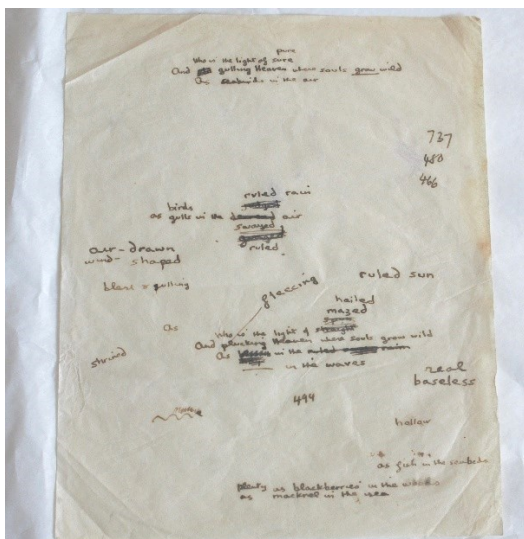 pure
Who is the light of sure
And gulling Heaven where souls grow wild
As in the air
737
480
466
ruled rain
birds
as gulls in the air
swayed
ruled
air-drawn
wind-shaped
fleecing
ruled sun
hailed
mazed
As
Who is the light of
And plucking Heaven where souls grow wild
As in the ruled rain
in the waves
real
baseless
494
hollow
as fish in the seabeds
plenty as blackberries in the woods
as mackerel in the sea